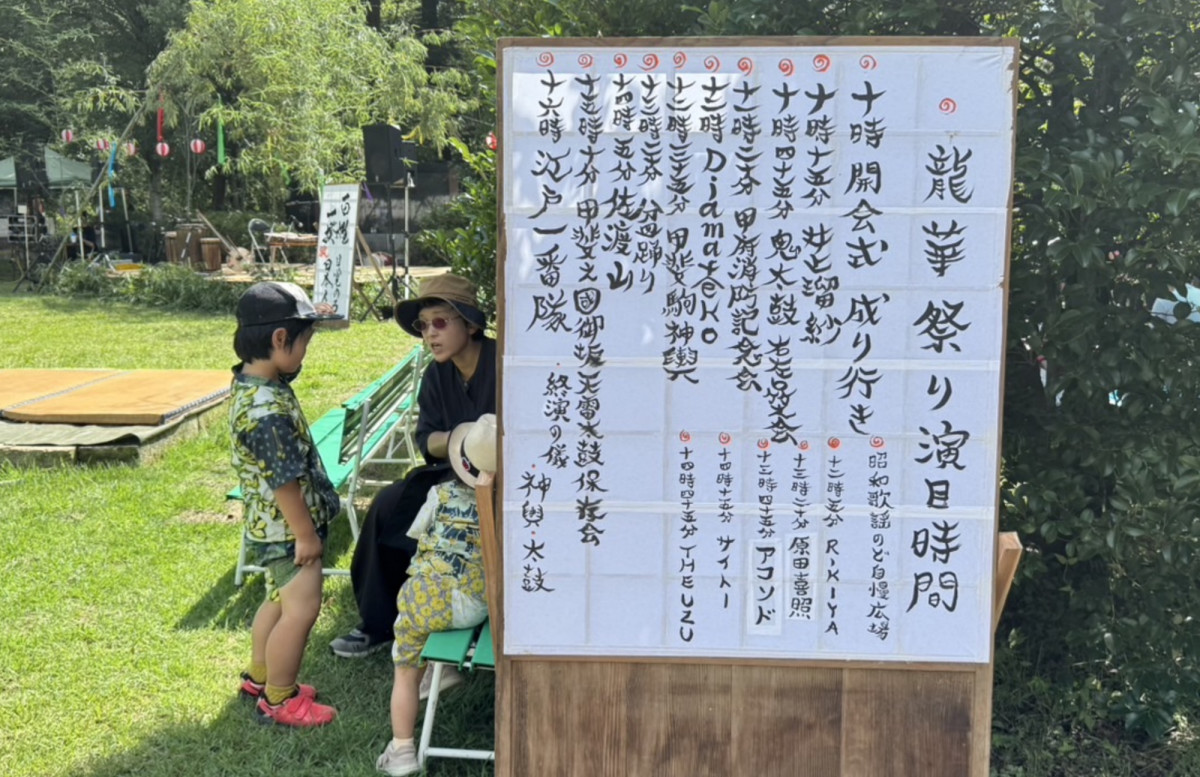 龍華祭り演目時間
十時 開会式 成り行き
十時十五分
十時四十五分 鬼太鼓
十一時二分 甲府消防記念会
十二時 Diamateko
十二時三十五分 甲斐駒神輿
十三時二分 盆踊り
十四時 五分 佐渡山
十五時十分 甲斐之國御坂天雷太鼓保存会
十六時 江戸一番隊 ・終演の儀 ・神輿・太鼓
昭和歌謡のど自慢広場
十二時五分 RIKIYA
十三時二十分 原田喜照
十三時四十五分 アコンド
十四時十五分 サイトー
十四時四十五分 THE UZU